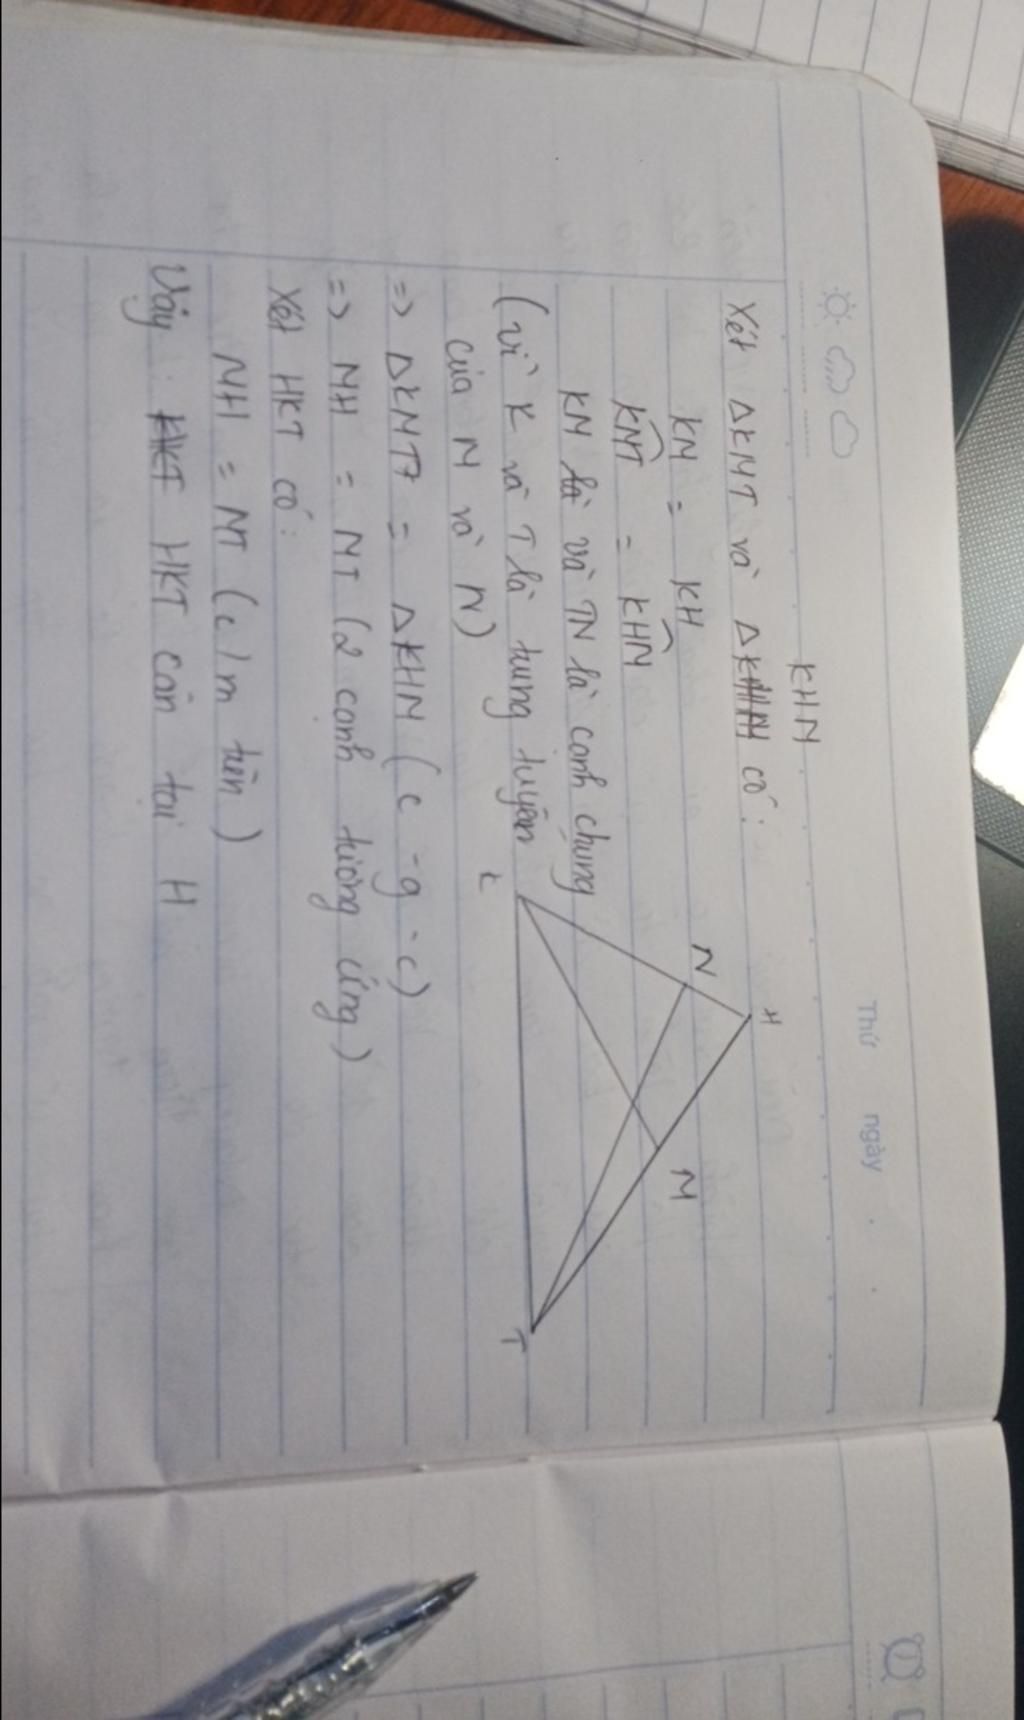 Thứ ngày
KHN
Xét ΔKMT và ΔKHM có:
KN = KH
KMT = KHN
KM là và TN là cạnh chung
(vì K và T là trung tuyến
của M và N)
=> ΔKMT = ΔKHN (c-g-c)
=> MH = MT (2 cạnh tương ứng)
Xét HKT có:
MH = MT (c/m trên)
Vậy: HKT cân tại H
H
N
M
K
T